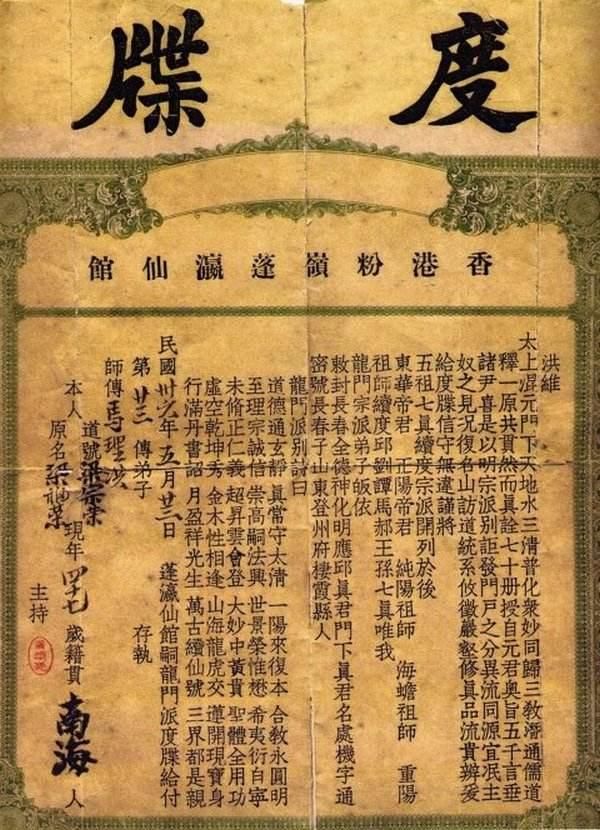 度牒
香港粉嶺蓬瀛仙館
洪維
太上混元門下天地水三清普化衆妙同歸三教潛通儒道
釋一原共貫然而眞詮七十册授自元君奧旨五千言垂
諸尹喜是以明宗派別詎發門戸之分異流同源宜泯主
奴之見況復名山訪道統系攸徵嚴壑修眞品流貴辨爰
給度牒信守無違謹將
五祖七眞續度宗派開列於後
東華帝君 正陽帝君 純陽祖師 海蟾祖師 重陽
祖師續度邱劉譚馬郝王孫七眞唯我
龍門宗派弟子皈依
敕封長春全德神化明應邱眞君門下眞君名處機字通
密號長春子山東登州府棲霞縣人
龍門派別詩曰
道德通玄靜 眞常守太清 一陽來復本 合教永圓明
至理宗誠信 崇高嗣法興 世景榮惟懋 希夷衍自寧
未修正仁義 超昇雲會登 大妙中黃貴 聖體全用功
虛空乾坤秀 金木性相逢 山海龍虎交 蓮開現寶身
行滿丹書詔 月盈祥光生 萬古續仙號 三界都是親
民國卅六年五月廿二日 蓬瀛仙館嗣龍門派度牒給付
第廿三傳弟子 存執
師傅馬聖洪
道號梁宗榮
本人
原名梁福榮
現年四十七歲籍貫南海人
主持